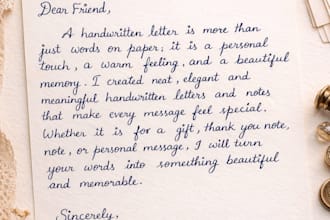 Dear Friend,
A handwritten letter is more than
just words on paper; it is a personal
touch, a warm feeling, and a beautiful
memory. I created neat, elegant and
meaningful handwritten letters and notes
that make every message feel special.
Whether it is for a gift, thank you note,
note, or personal message, I will turn
your words into something beautiful
and memorable.
Sincerely,